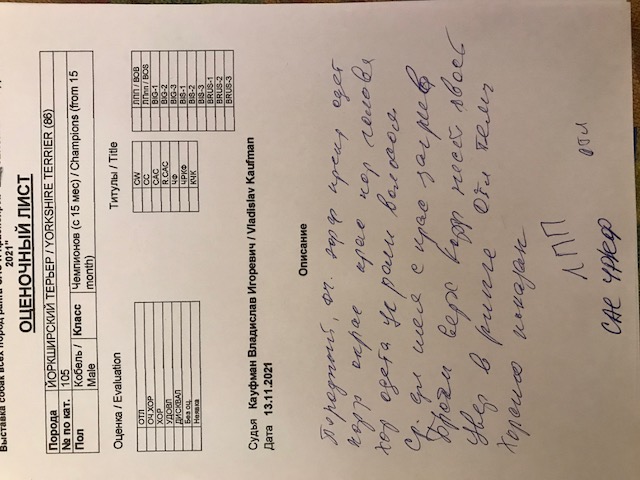 Выставка собак всех пород ранга
2021"
ОЦЕНОЧНЫЙ ЛИСТ
Порода ЙОРКШИРСКИЙ ТЕРЬЕР / YORKSHIRE TERRIER (86)
№ по кат. 105
Пол Кобель / Male Класс Чемпионов (с 15 мес) / Champions (from 15 month)
Оценка / Evaluation
ОТЛ
ОЧ.ХОР
ХОР
УДОВЛ
ДИСКВАЛ
Без оц.
Неявка
Титулы / Title
CW
CC
CAC
R.CAC
ЧФ
ЧРКФ
КЧК
ЛПП / BOB
ЛПпп / BOS
BIG-1
BIG-2
BIG-3
BIS-1
BIS-2
BIS-3
BRUS-1
BRUS-2
BRUS-3
Судья Кауфман Владислав Игоревич / Vladislav Kaufman
Дата 13.11.2021
Описание
Породный, оч. корр одет
корр окрас крас кор голова
хор одета волосом
Ср. дл шея с крас загрив
верх корр несёт хвост
Увер в ринге Отл темп
Хорошо показан
ЛПП отл
CAC ЧРКФ